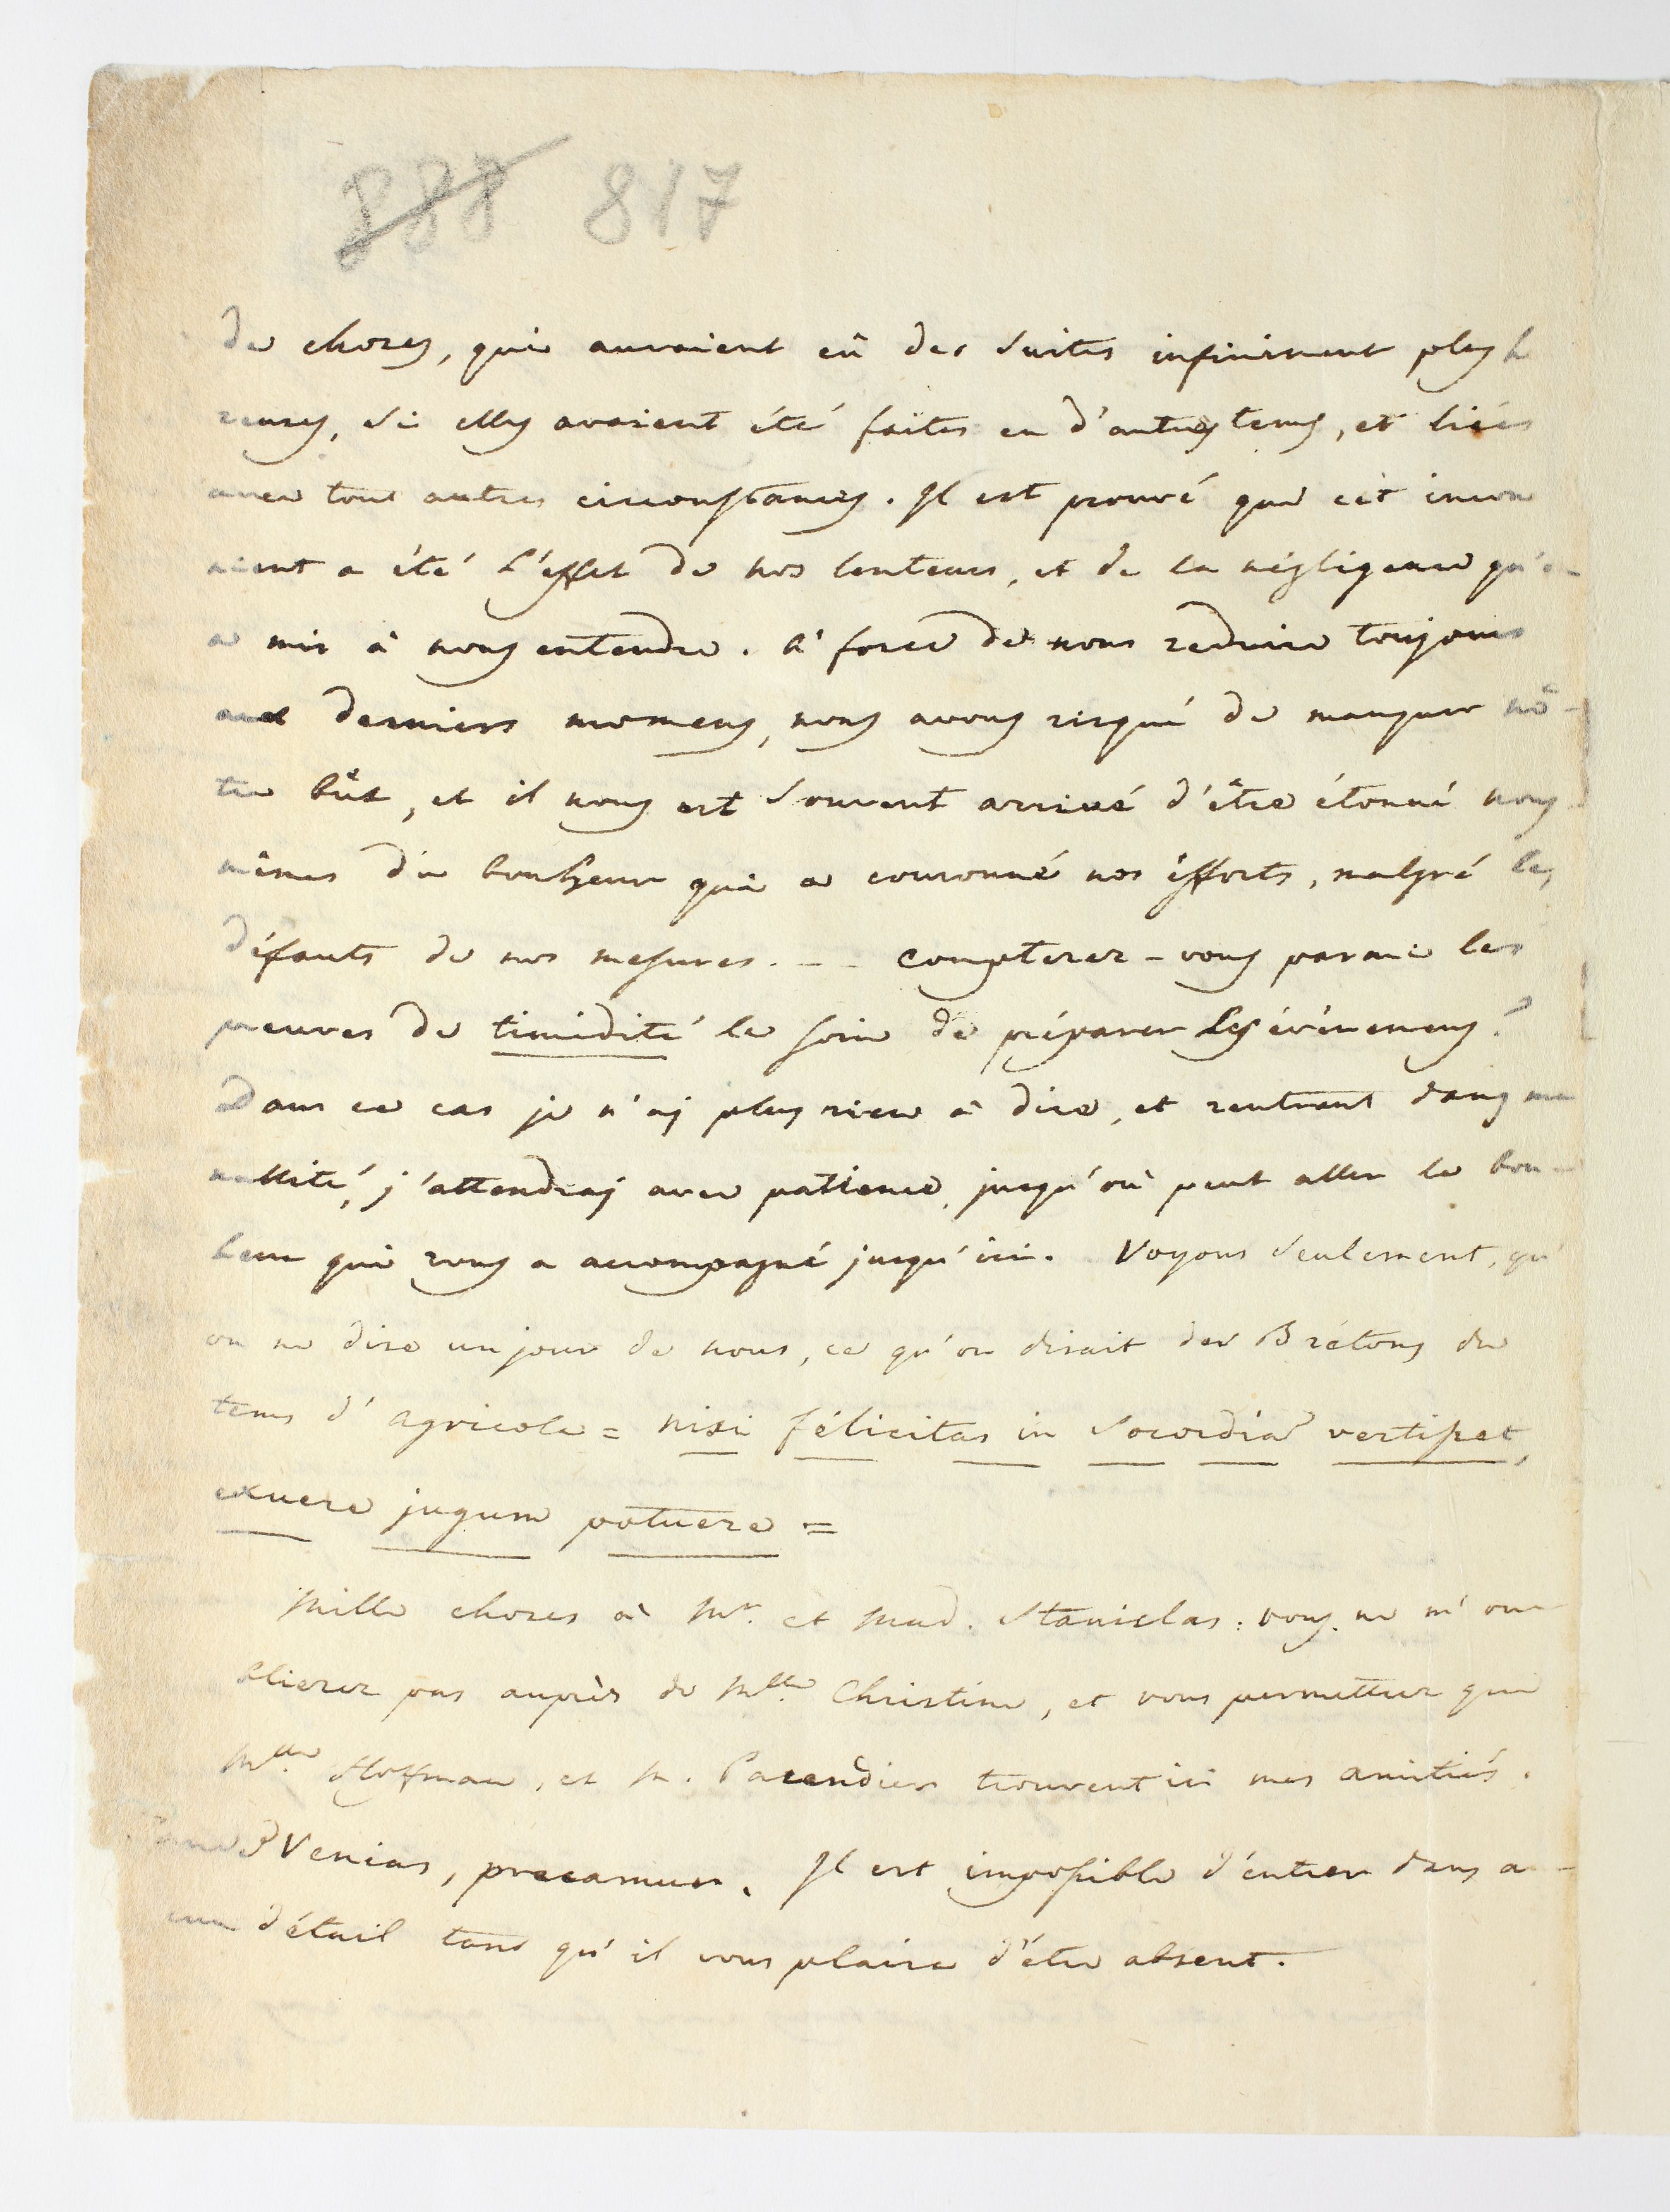 888 817
de choses, qui auraient eû des suites infiniment plus h
reuses, si elles avaient été faites en d'autres tems, et liées
avec tout autres circonstances. Il est prouvé que cet incon
nient a été l'effet de nos lenteurs, et de la négligence qu'on
a mis à nous entendre. à force de nous reduire toujours
aux derniers momens, nous avons risqué de manquer nô-
tre bût, et il nous est souvent arrivé d'être étonné nous
mêmes du bonheur qui a couronné nos éfforts, malgré les
défauts de nos mesures. - - compterez-vous parmi les
preuves de timidité le soin de préparer les événemens?
Dans ce cas je n'aj plus rien à dire, et rentrant dans ma
nullité, j'attendraj avec patience, jusqu'où peut aller le bon-
heur qui vous a accompagné jusqu'ici. Voyons seulement, qu'
on ne dise un jour de nous, ce qu'on disait des Brétons du
tems d'Agricola = nisi félicitas in socordiã vertisset,
exuere jugum potuere =
Mille choses à Mr. et Mad. Stanislas: vous ne m'ou
blierez pas auprès de Mlle Christine, et vous permettrez que
Mlle. Hoffman, et M. trouvent ici mes amitiés.
Venias, precamur. Il est impossible d'entrer dans au-
cun détail tant qu'il vous plaira d'être absent.